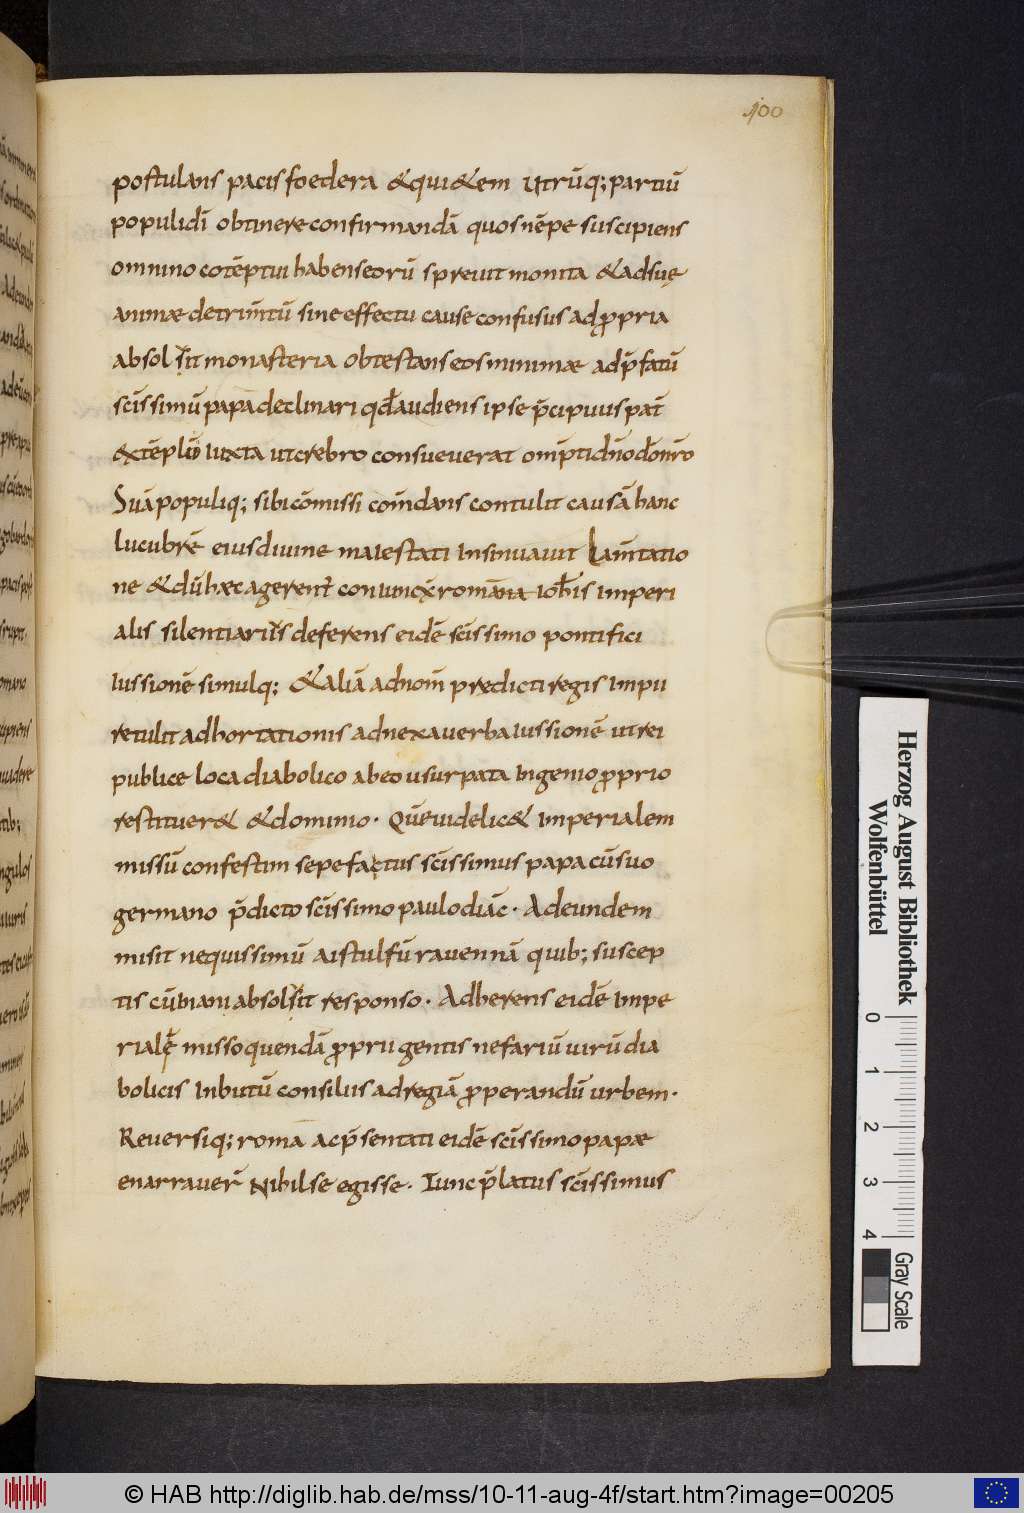 100
postulans pacis foedera &qui&em utrūq; partiū
populi dī obtinere confirmandā quos nēpe suscipiens
omnino cotēptui habens eorū spreuit monita & ad suę
animæ detrim̄tū sine effectu cause confusus ad ꝓpria
absol sit monasteria obtestans eos minimæ ad p̄fatū
sc̄issimū papā declinari qđ audiens ipse p̄cipuus pat̄
extēplū iuxta ut crebro consueuerat omp̄ti dn̄o do nr̄o
Suā populiq; sibi cōmissi com̄dans contulit causā hanc
lucubrē eius diuine maiestati insinuauit Lam̄tatio
ne & dū hæc agerent̄ coniuncx romāna ioh̄is imperi
alis silentiarius deferens eidē sc̄issimo pontifici
iussionē simulq; & aliā ad nom̄ predicti regis impii
retulit adhortationis adnexa uerba iussionē ut rei
publice loca diabolico ab eo usurpata ingenio ꝓprio
restituer& & dominio. Quē uidelic& imperialem
missū confestim sepe factus sc̄issimus papa cū suo
germano p̄dicto sc̄issimo paulo diāc. Ad eundem
misit nequissimū aistulfū rauennā quib; suscep
tis cū inani absolsit responso. Adherens eidē impe
rialę misso quendā ꝓprii gentis nefariū uirū dia
bolicis inbutū consiliis ad regiā ꝓperandū urbem.
Reuersiq; romā ac p̄sentati eidē sc̄issimo papæ
enarrauer̄ nihil se egisse. Tunc p̄latus sc̄issimus
Herzog August Bibliothek
Wolfenbüttel
0 1 2 3 4
Gray Scale
© HAB http://diglib.hab.de/mss/10-11-aug-4f/start.htm?image=00205